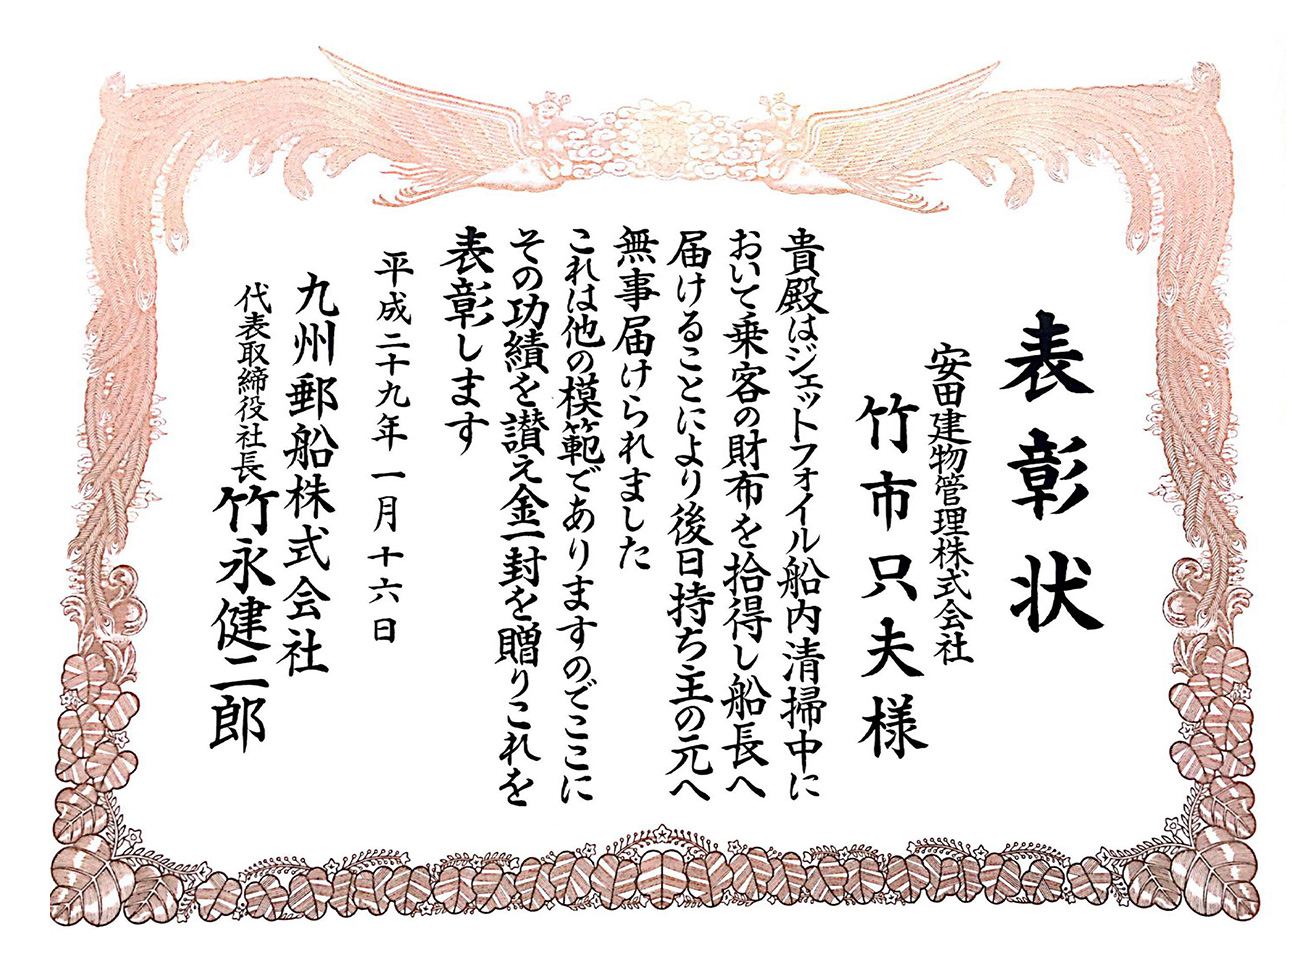 表彰状
安田建物管理株式会社
竹市只夫様
貴殿はジェットフォイル船内清掃中に
おいて乗客の財布を拾得し船長へ
届けることにより後日持ち主の元へ
無事届けられました
これは他の模範でありますのでここに
その功績を讃え金一封を贈りこれを
表彰します
平成二十九年一月十六日
九州郵船株式会社
代表取締役社長竹永健二郎